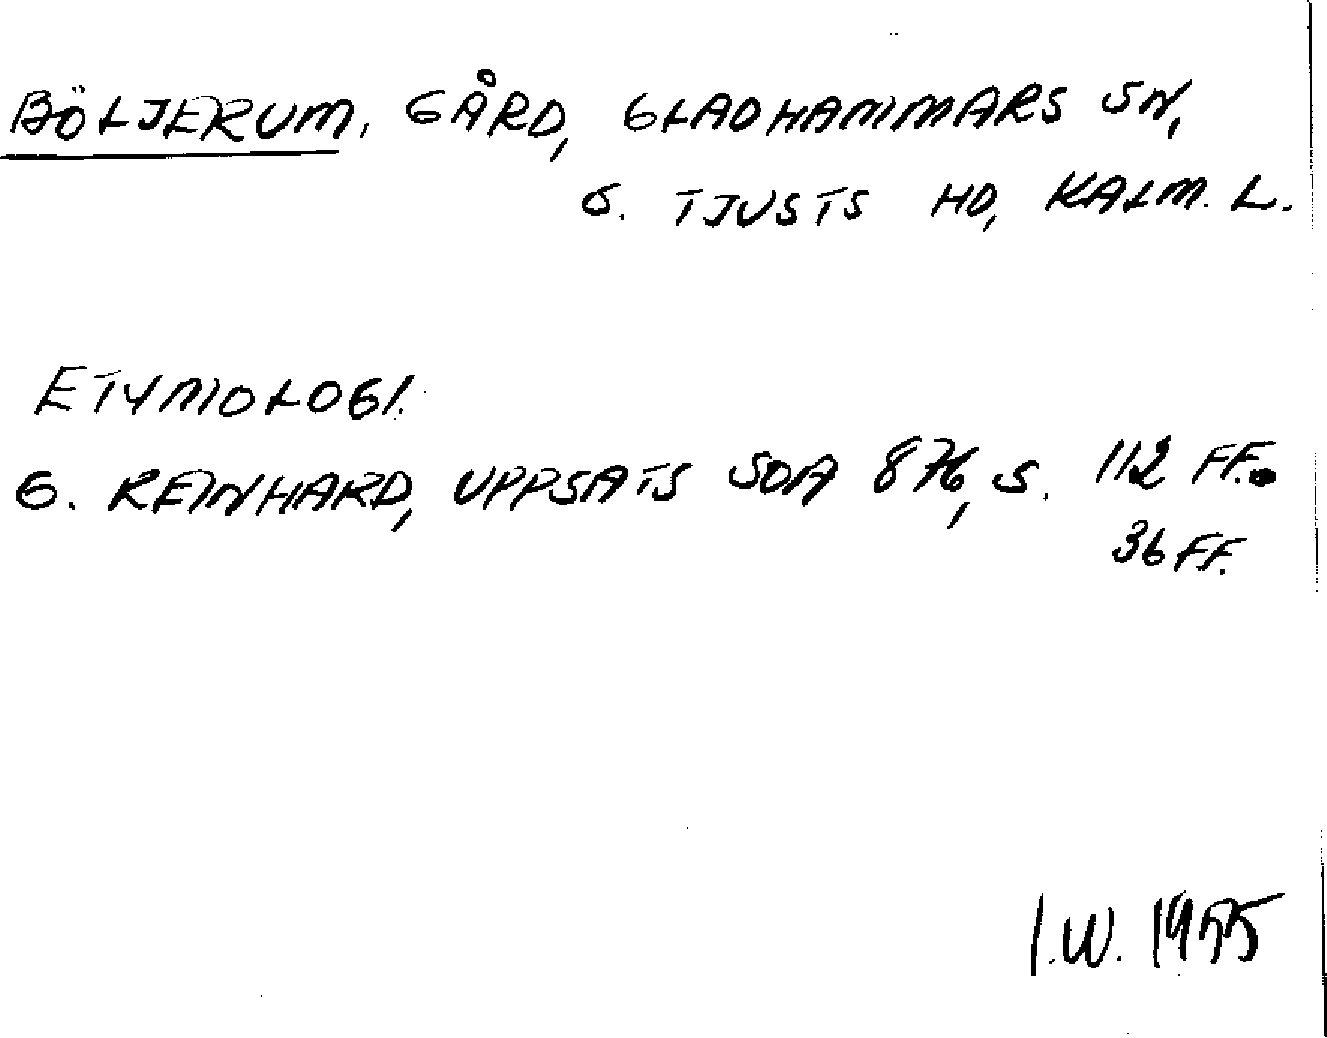 BÖLJERUM, GÅRD, GLADHAMMARS SN,
S. TJUSTS HD, KALM. L.
ETYMOLOGI.
G. REINHARD, UPPSATS SOA 876, S. 112 FF.
36 FF.
I.W. 1975